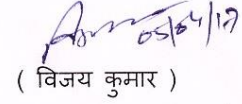 05/04/17
( विजय कुमार )